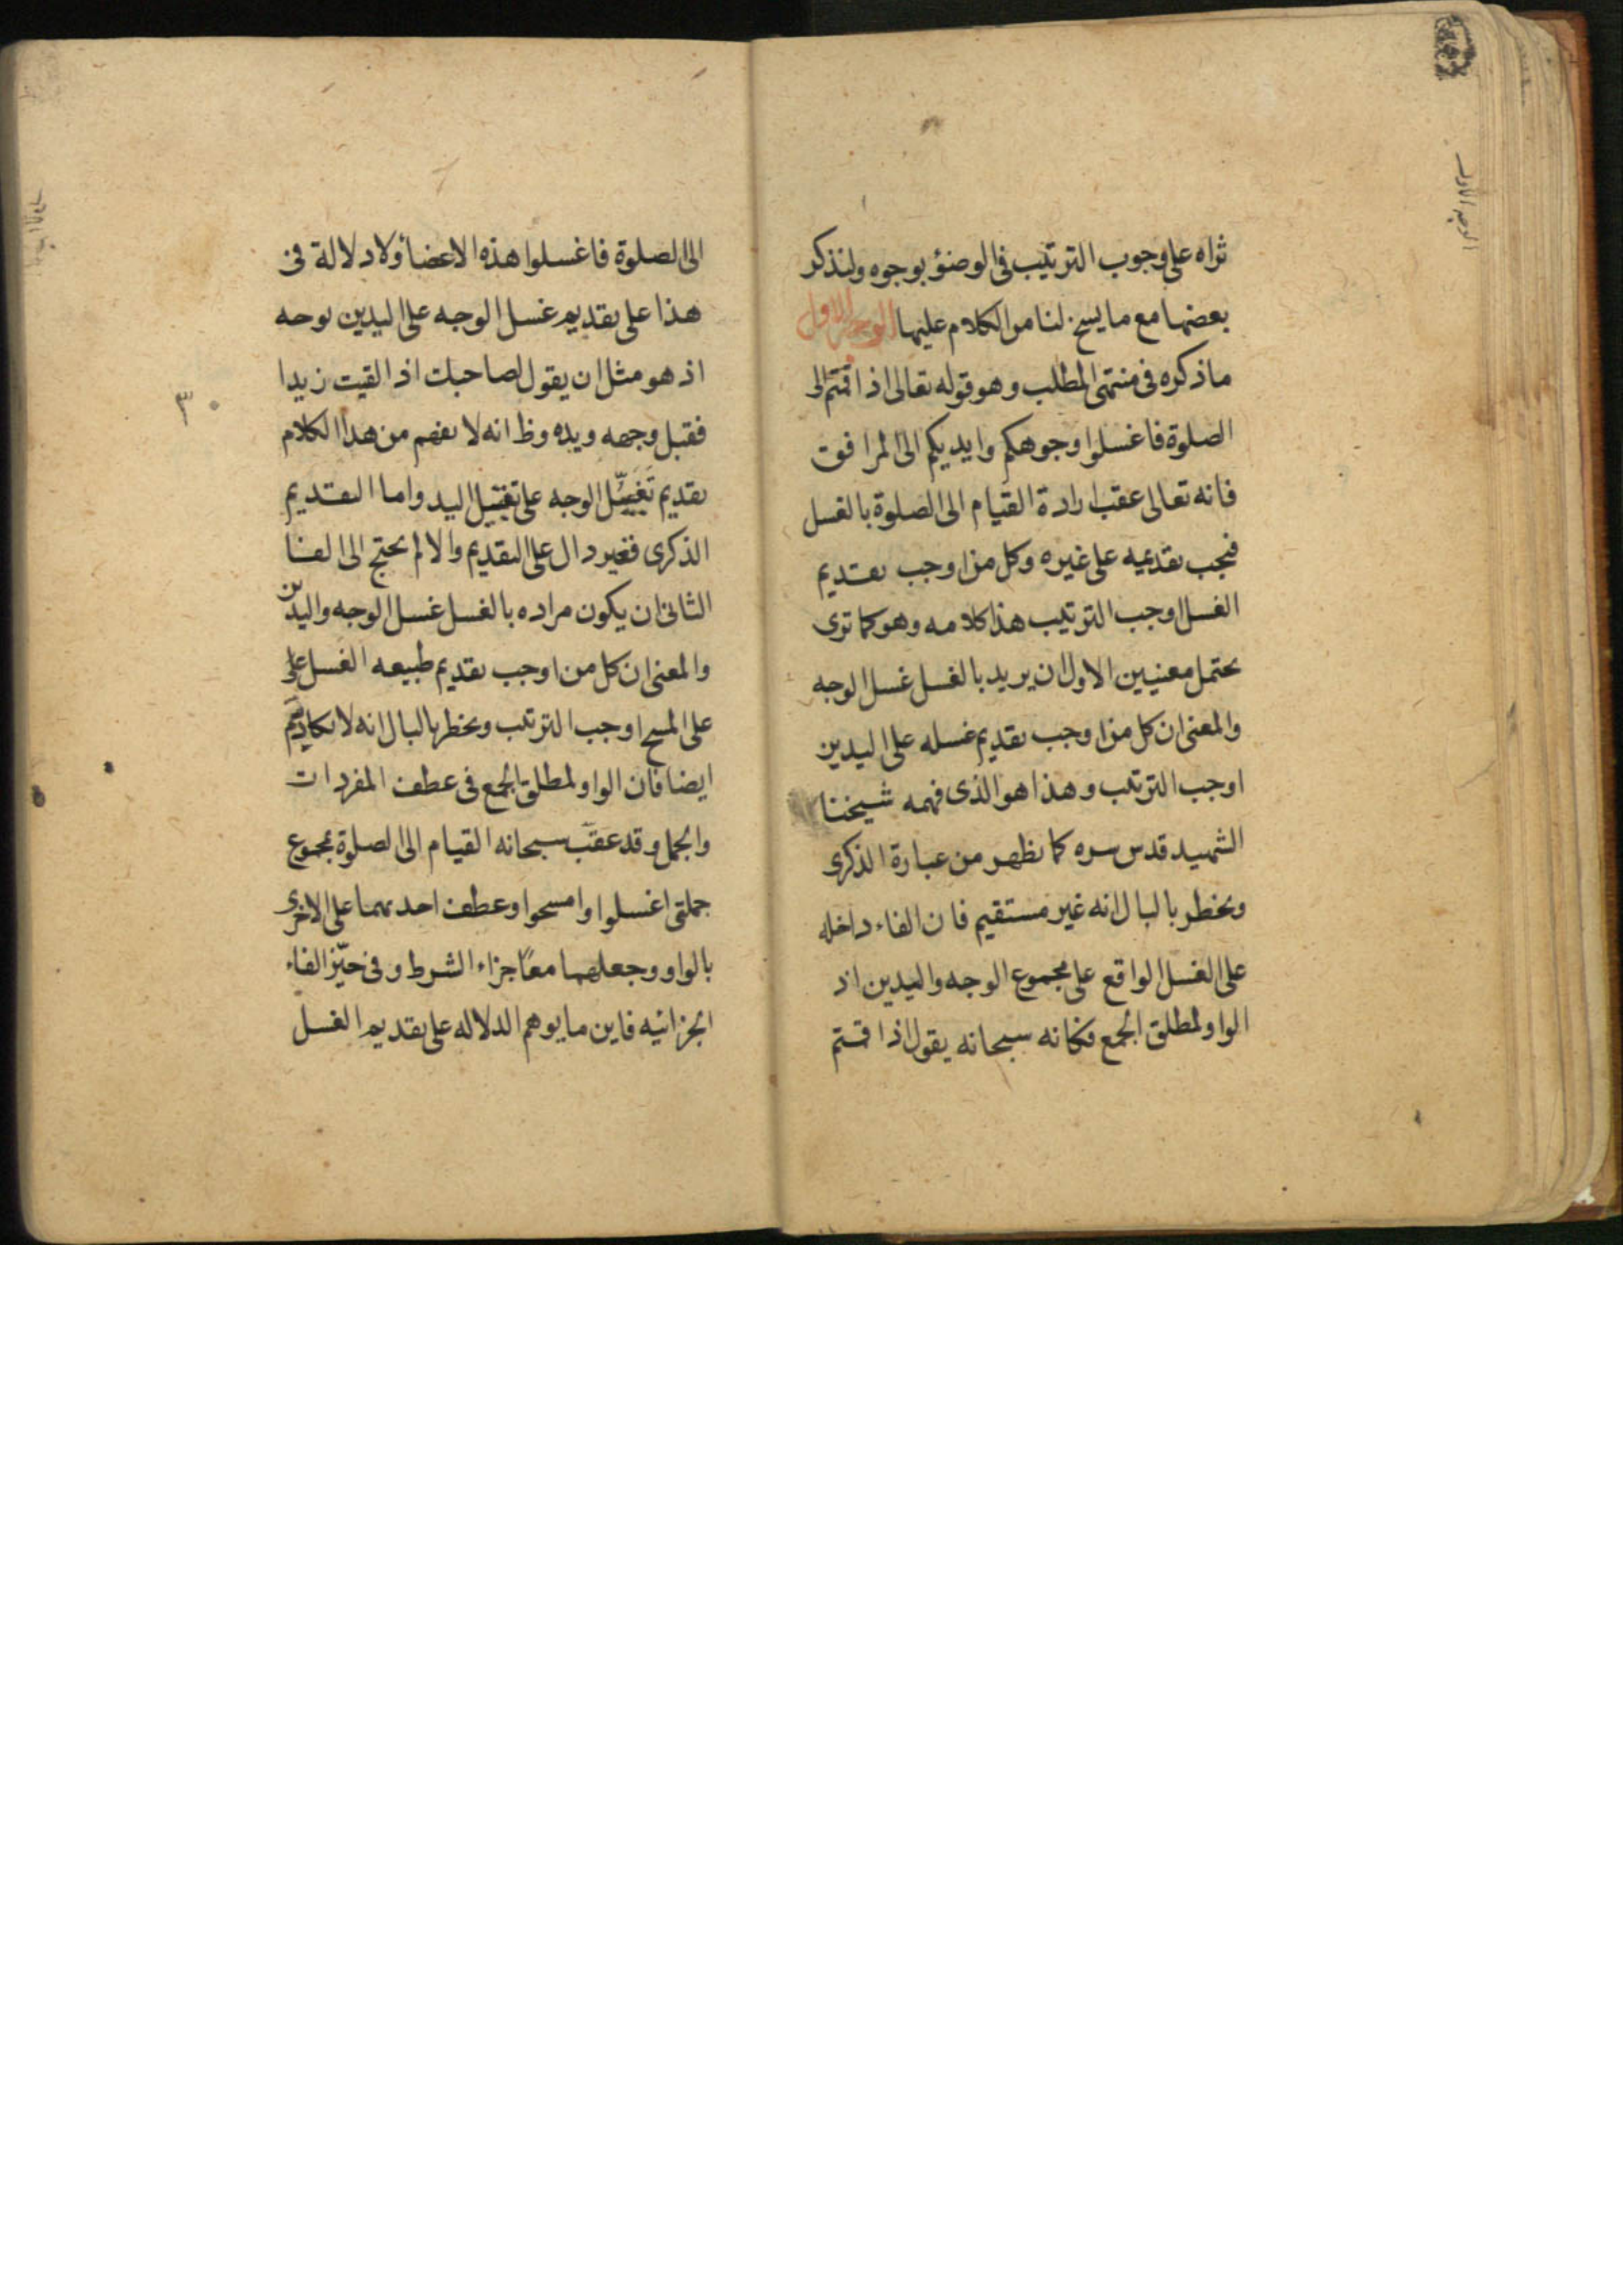 ثراه على وجوب الترتيب فى الوضوء بوجوه ولنذكر
بعضها مع ما يسنح لنا من الكلام عليها الوجه الاول
ما ذكره فى منتهى المطلب وهو قوله تعالى اذا قمتم الى
الصلوة فاغسلوا وجوهكم وايديكم الى المرافق
فانه تعالى عقب ارادة القيام الى الصلوة بالغسل
فيجب تقديمه على غيره وكل من اوجب تقديم
الغسل اوجب الترتيب هذا كلامه وهو كما ترى
يحتمل معنيين الاول ان يريد بالغسل غسل الوجه
والمعنى ان كل من اوجب تقديم غسله على اليدين
اوجب الترتيب وهذا هو الذى فهمه شيخنا
الشهيد قدس سره كما يظهر من عبارة الذكرى
ويخطر بالبال انه غير مستقيم فان الفاء داخله
على الغسل الواقع على مجموع الوجه واليدين اذ
الواو لمطلق الجمع فكانه سبحانه يقول اذا قمتم
الوجه الاول
الى الصلوة فاغسلوا هذه الاعضاء ولا دلالة فى
هذا على تقديم غسل الوجه على اليدين بوجه
اذ هو مثل ان يقول لصاحبك اذا لقيت زيدا
فقبل وجهه ويده وظ انه لا يفهم من هذا الكلام
تقديم تقبيل الوجه على تقبيل اليد واما التقديم
الذكرى فغير دال على التقديم والا لم يحتج الى الفا
الثانى ان يكون مراده بالغسل غسل الوجه واليدين
والمعنى ان كل من اوجب تقديم طبيعه الغسل على
على المسح اوجب الترتيب ويخطر بالبال انه لا يكاد يتم
ايضا فان الواو لمطلق الجمع فى عطف المفردات
والجمل وقد عقب سبحانه القيام الى الصلوة بمجموع
جملتى اغسلوا وامسحوا وعطف احديهما على الاخرى
بالواو وجعلهما معًا جزاء الشرط وفى حيّز الفاء
الجزائيه فاين ما يوهم الدلاله على تقديم الغسل
٣٠